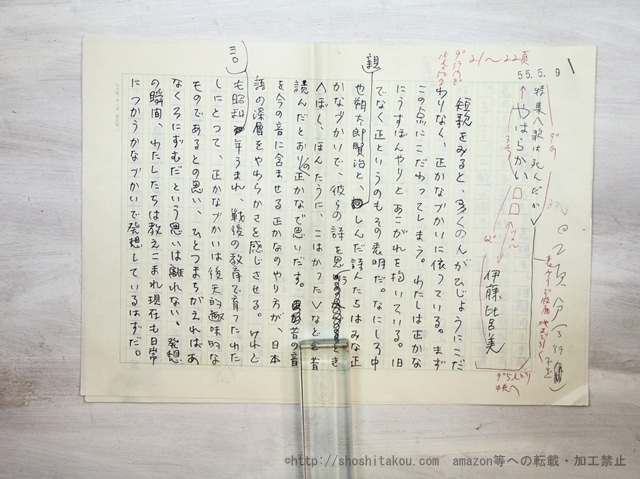 55.5.9
21〜22頁
特集〈歌は死んだか〉
やはらかい□□
伊藤比呂美
短歌をみると、多くのんがひじょうにこだ
わりなく、正かなづかいに依っている。まず
この点にこだわってしまう。わたしは正かな
にうすぼんやりとあこがれを抱いている。旧
でなく正というのもその表明だ。なにしろ中
也朔太郎賢治と、親しんだ詩人たちはみな正
かなづかいで、彼らの詩を思うとき
へぼく、ほんたうに、こはかった〉などと昔
読んだとおりの正かなで思いだす。昔の音
を今の音に含ませる正かなのやり方が、日本
語の深層をやわらかさを感じさせる。けれど
も昭和三〇年うまれ、戦後の教育で育ったわた
しにとって、正かなづかいは後天的趣味的な
ものであるとの思い、ひとつまちがえればあ
なくろにずむだという思いは離れない。発想
の瞬間、わたしたちは教えこまれ現在も日常
につかうかなづかいで発想しているはずだ。
©http://shoshitakou.com amazon等への転載・加工禁止